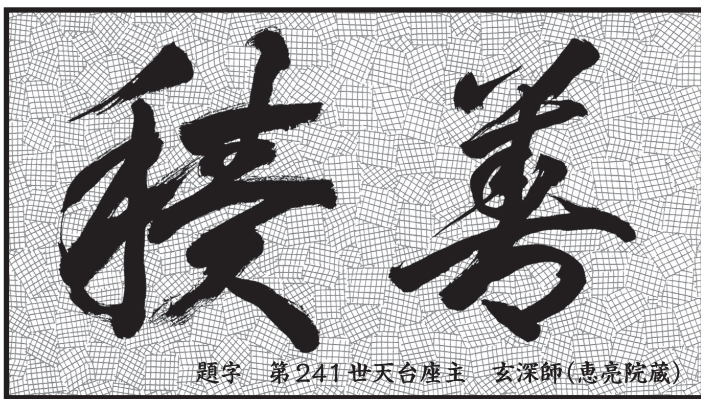 積善
題字 第241世天台座主 玄深師(恵亮院蔵)